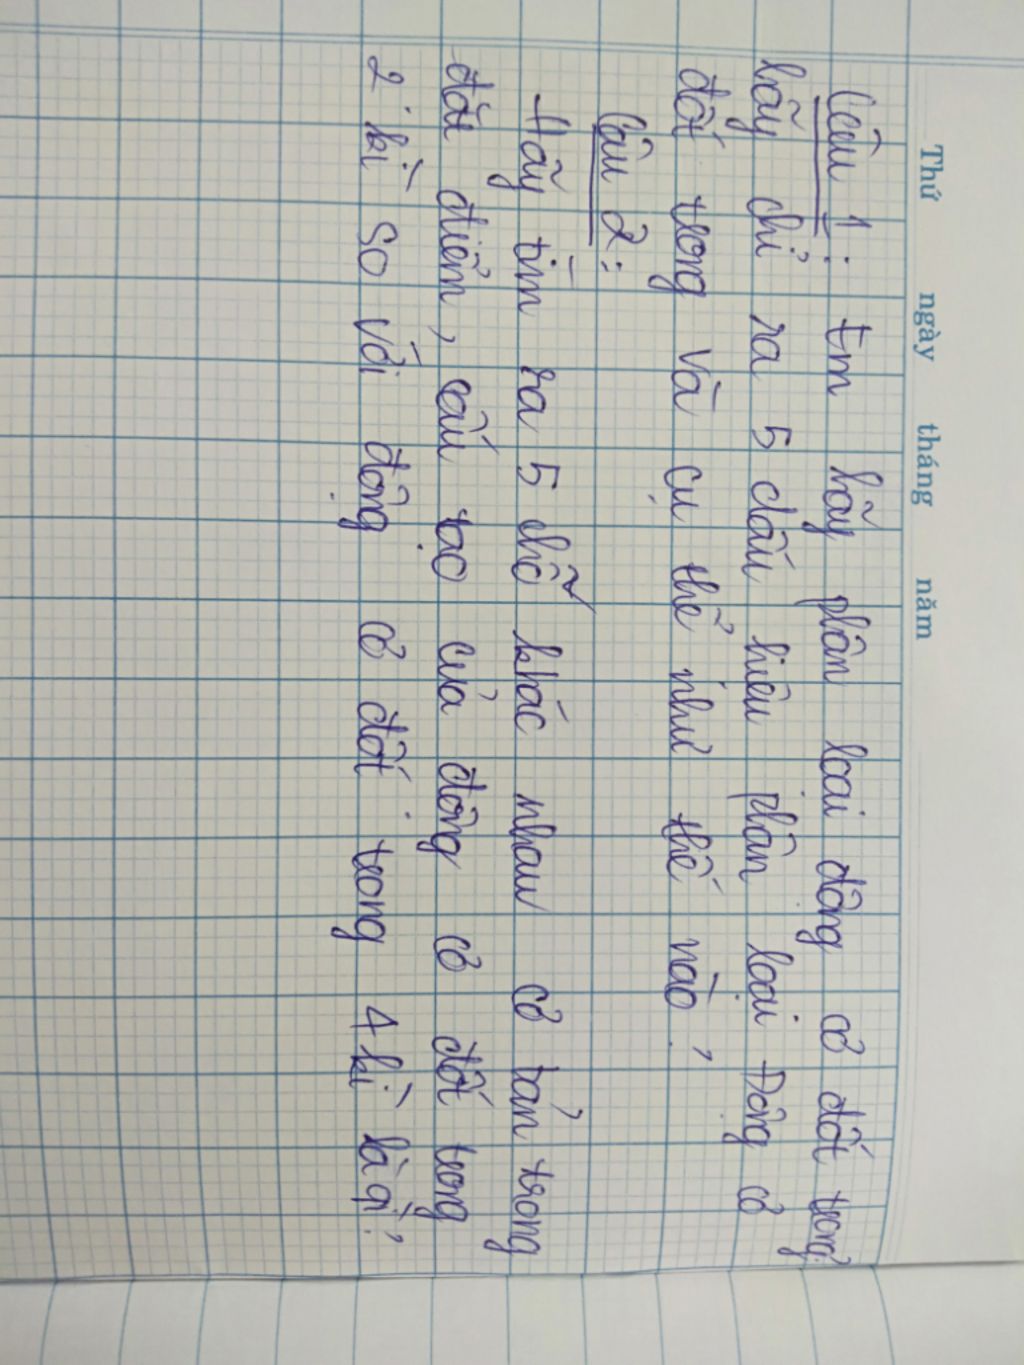 Thứ ngày tháng năm
Câu 1: Em hãy phân loại động cơ đốt trong,
hãy chỉ ra 5 dấu hiệu phân loại Động cơ
đốt trong và cụ thể như thế nào?
Câu 2:
Hãy tìm ra 5 chỗ khác nhau cơ bản trong
đặc điểm, cấu tạo của động cơ đốt trong
2 kì so với động cơ đốt trong 4 kì là gì?